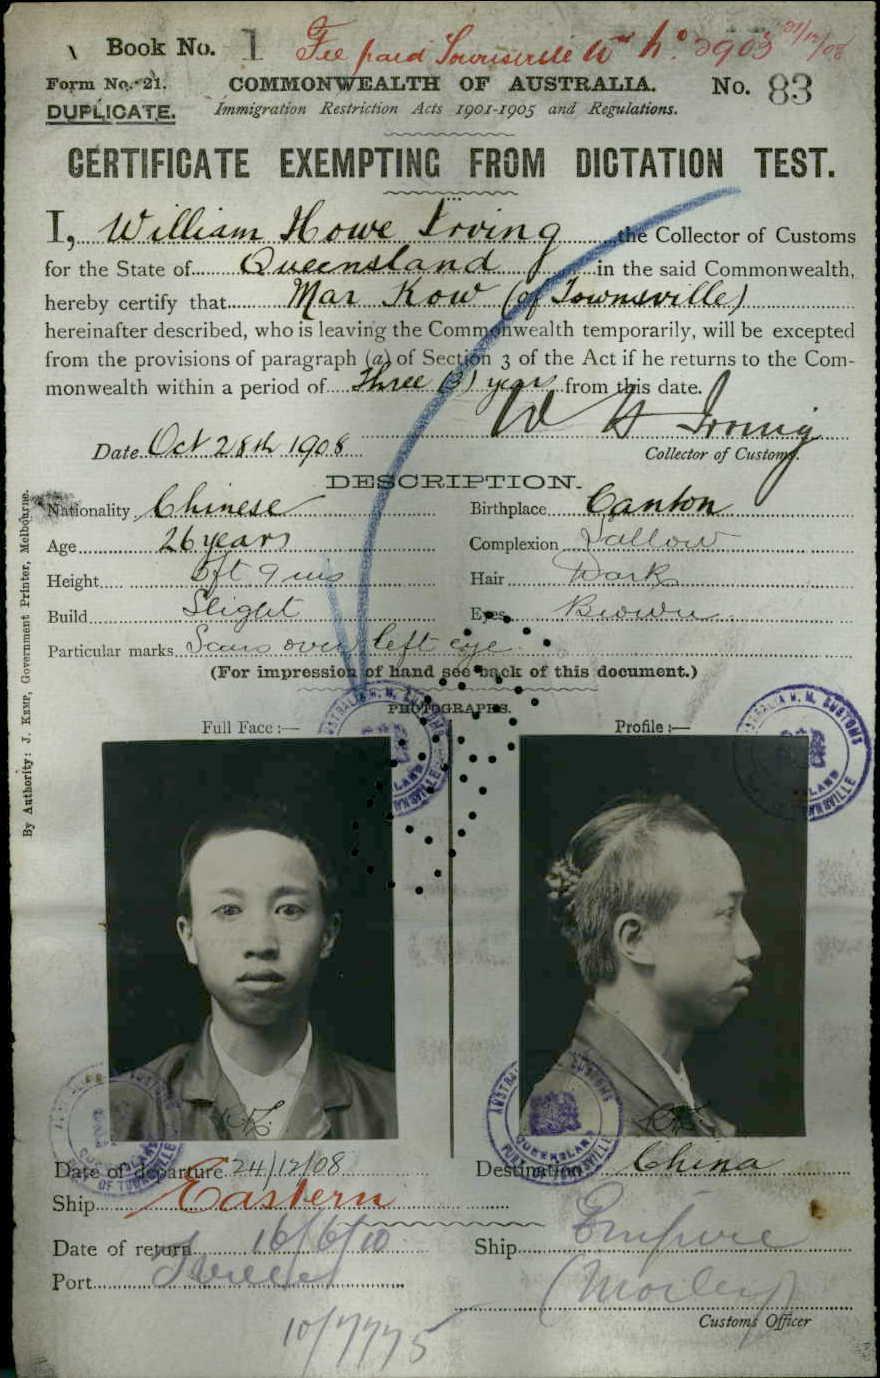 Book No. 1 Fee paid Townsville
Form No. 21. COMMONWEALTH OF AUSTRALIA. No. 83
DUPLICATE. Immigration Restriction Acts 1901-1905 and Regulations.
CERTIFICATE EXEMPTING FROM DICTATION TEST.
I, William Howe Irving the Collector of Customs
for the State of Queensland in the said Commonwealth,
hereby certify that Mar Kow (of Townsville)
hereinafter described, who is leaving the Commonwealth temporarily, will be excepted
from the provisions of paragraph (a) of Section 3 of the Act if he returns to the Com-
monwealth within a period of Three (3) years from this date.
W H Irving
Date Oct 28th 1908 Collector of Customs.
DESCRIPTION.
Nationality Chinese Birthplace Canton
Age 26 years Complexion Sallow
Height 5ft 9 ins Hair Dark
Build Slight Eyes Brown
Particular marks Scars over left eye
(For impression of hand see back of this document.)
PHOTOGRAPHS.
Full Face :— Profile :—
By Authority: J. KEMP, Government Printer, Melbourne.
Date of departure 24/12/08 Destination China
Ship Eastern
Date of return 16/6/10 Ship Empire
Port
Customs Officer
10/7775